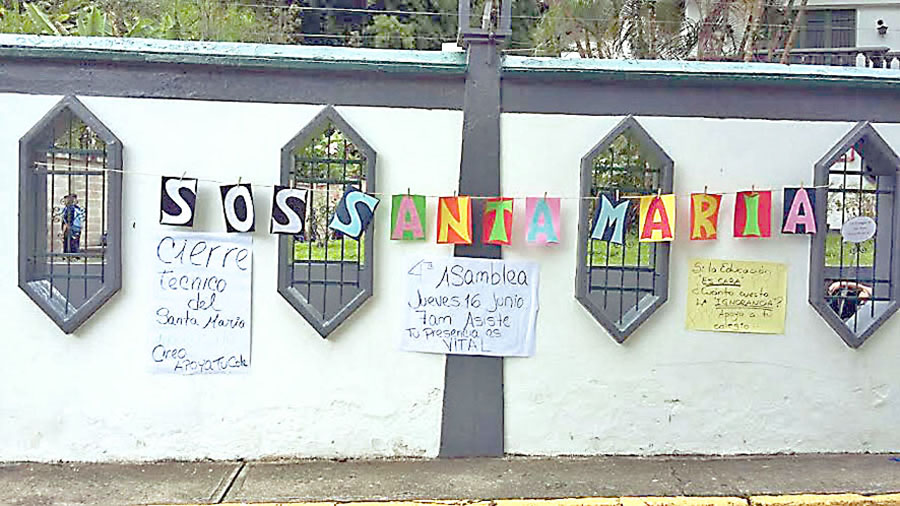 SOS SANTA MARIA
Cierre
Tecnico
del
Santa Maria
APOYA TU Cole
4ta ASamblea
Jueves 16 Junio
7am Asiste
Tu presencia es
VITAL
Si la Educación
ES CARA
¿Cuanto cuesta
LA "IGNORANCIA"?
Apoya a tu
colegio